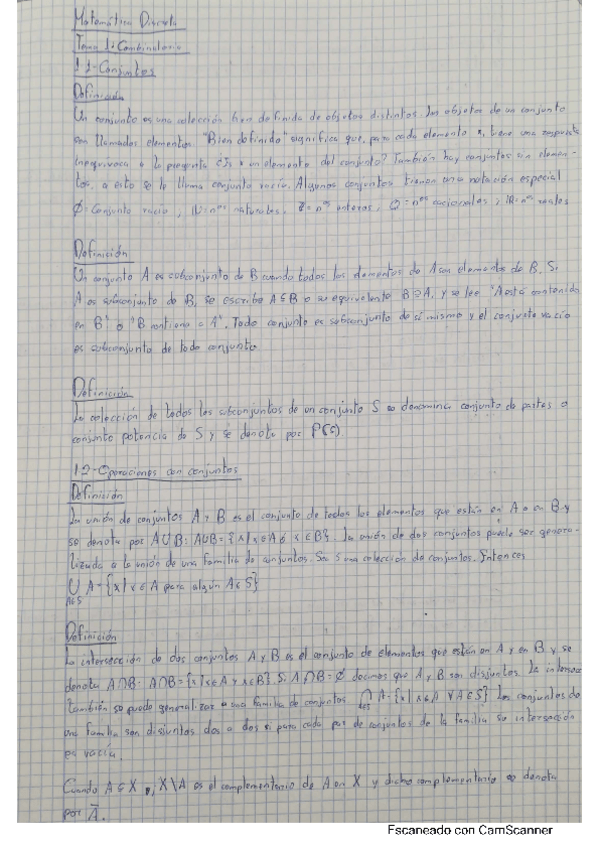 Matemática Discreta
Tema 1: Combinatoria
1.1-Conjuntos
Definición
Un conjunto es una colección bien definida de objetos distintos. Los objetos de un conjunto
son llamados elementos. "Bien definido" significa que, para cada elemento x, tiene una respuesta
inequívoca a la pregunta ¿Es x un elemento del conjunto? También hay conjuntos sin elemen-
tos, a esto se le llama conjunto vacío. Algunos conjuntos tienen una notación especial
∅=Conjunto vacío ; ℕ=nos naturales. ℤ=nos enteros ; ℚ=nos racionales ; ℝ=nos reales
Definición
Un conjunto A es subconjunto de B cuando todos los elementos de A son elementos de B. Si
A es subconjunto de B, se escribe A⊆B o su equivalente B⊇A, y se lee "A está contenido
en B" ó "B contiene a A". Todo conjunto es subconjunto de sí mismo y el conjunto vacío
es subconjunto de todo conjunto
Definición
La colección de todos los subconjuntos de un conjunto S se denomina conjunto de partes o
conjunto potencia de S y se denota por P(S)
1.2-Operaciones con conjuntos
Definición
La unión de conjuntos A y B es el conjunto de todos los elementos que están en A o en B y
se denota por A∪B: A∪B={x|x∈A ó x∈B}. La unión de dos conjuntos puede ser genera-
lizada a la unión de una familia de conjuntos. Sea S una colección de conjuntos. Entonces
⋃ A={x|x∈A para algún A∈S}
A∈S
Definición
La intersección de dos conjuntos A y B es el conjunto de elementos que están en A y en B y se
denota A∩B: A∩B={x|x∈A y x∈B} Si A∩B=∅ decimos que A y B son disjuntos. La intersec
también se puede generalizar a una familia de conjuntos ⋂ A={x|x∈A ∀A∈S} Los conjuntos de
una familia son disjuntos dos a dos si para cada par de conjuntos de la familia su intersección
es vacía.
Cuando A⊆X, X\A es el complementario de A en X y dicho complementario se denota
por Ā.
Escaneado con CamScanner